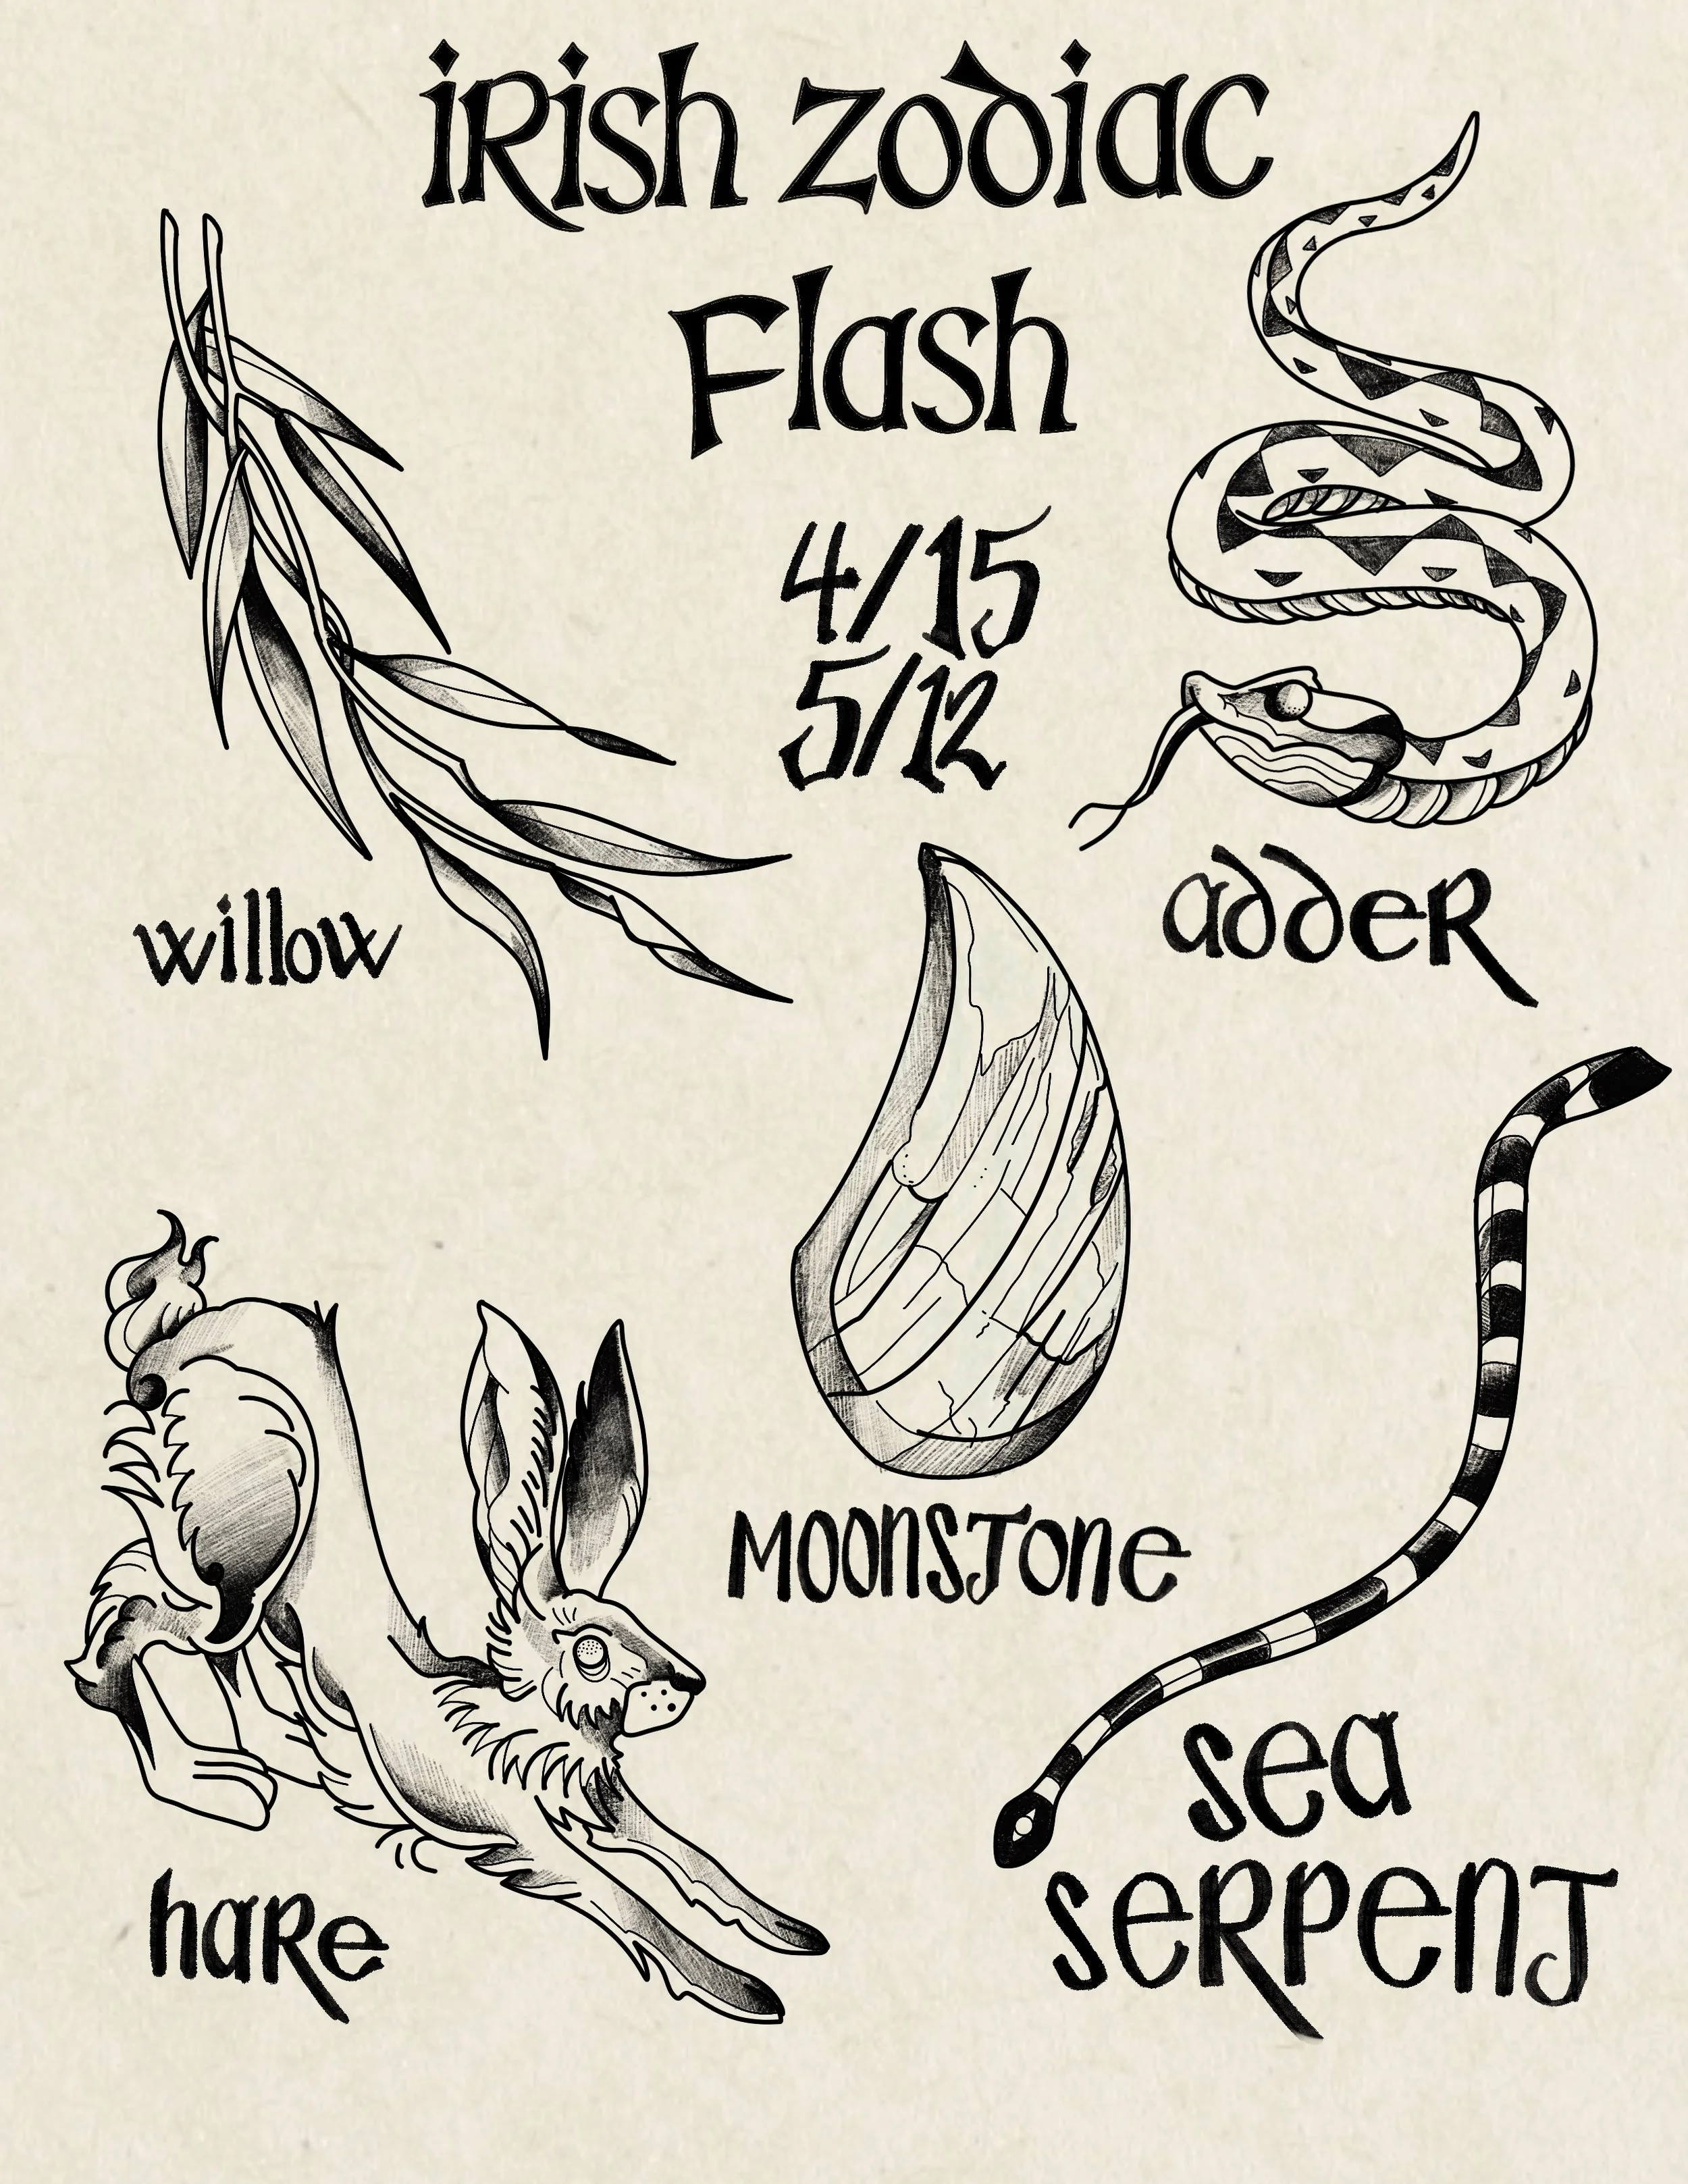 iRish zodiac
Flash
4/15
5/12
willow
adder
MOONSTONE
hare
sea
serpent